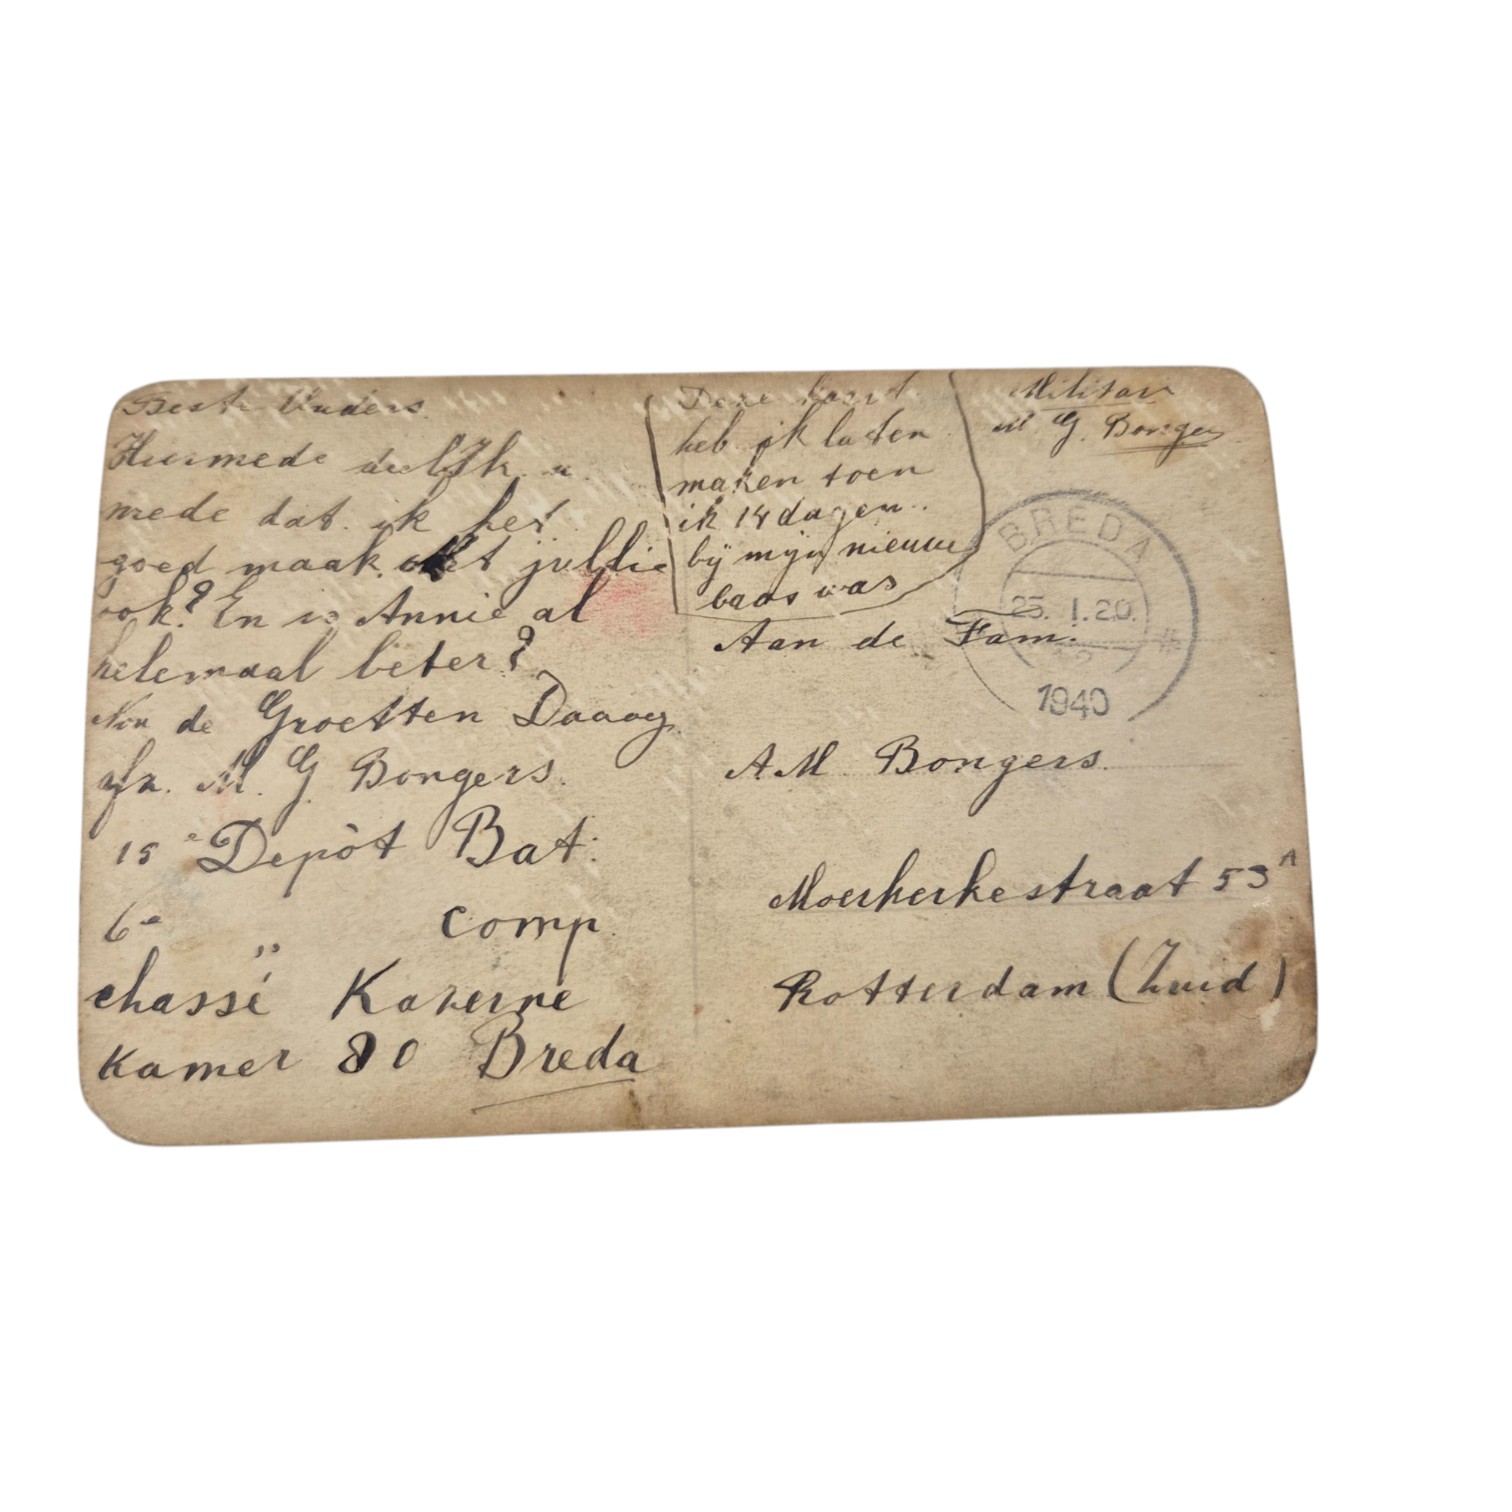 Beste Ouders.
Hiermede deel ik u
mede dat ik het
goed maak. met jullie
ook? En is Annie al
helemaal beter?
Nou de Groetten Daaag
afz. M. G. Bongers.
15e Depòt Bat.
6e „ comp.
chassé Kazerne
Kamer 80 Breda
Deze kaart
heb ik laten
maken toen
ik 14 dagen..
bij mijn nieuwe
baas was
Militair
M G. Bongers
BREDA
25. 1.20.
1940
Aan de Fam:
A.M. Bongers.
Moerkerkestraat 53A
Rotterdam (Zuid)